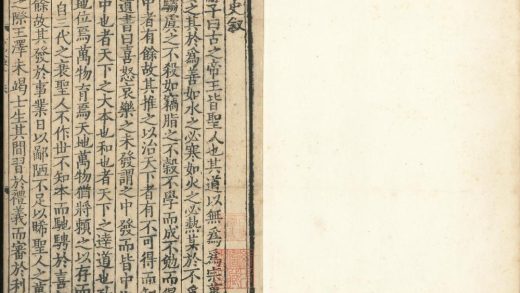 史叙
子曰古之帝王皆聖人也其道以無為為宗萬
之其於為善如水之必寒如火之必熱其於不
騶虞之不殺如竊脂之不穀不學而成不勉而得
中者有餘故其推之以治天下者有不可得而
遺書曰喜怒哀樂之未發謂之中發而皆中
中也者天下之大本也和也者天下之達道也致
地位焉萬物育焉天地萬物猶將賴之以存而
自三代之衰聖人不作世不知本而馳騁於喜
餘故其發於事業日以鄙陋不足以睎聖人之萬
之際王澤未竭士生其間習於禮義而審於利